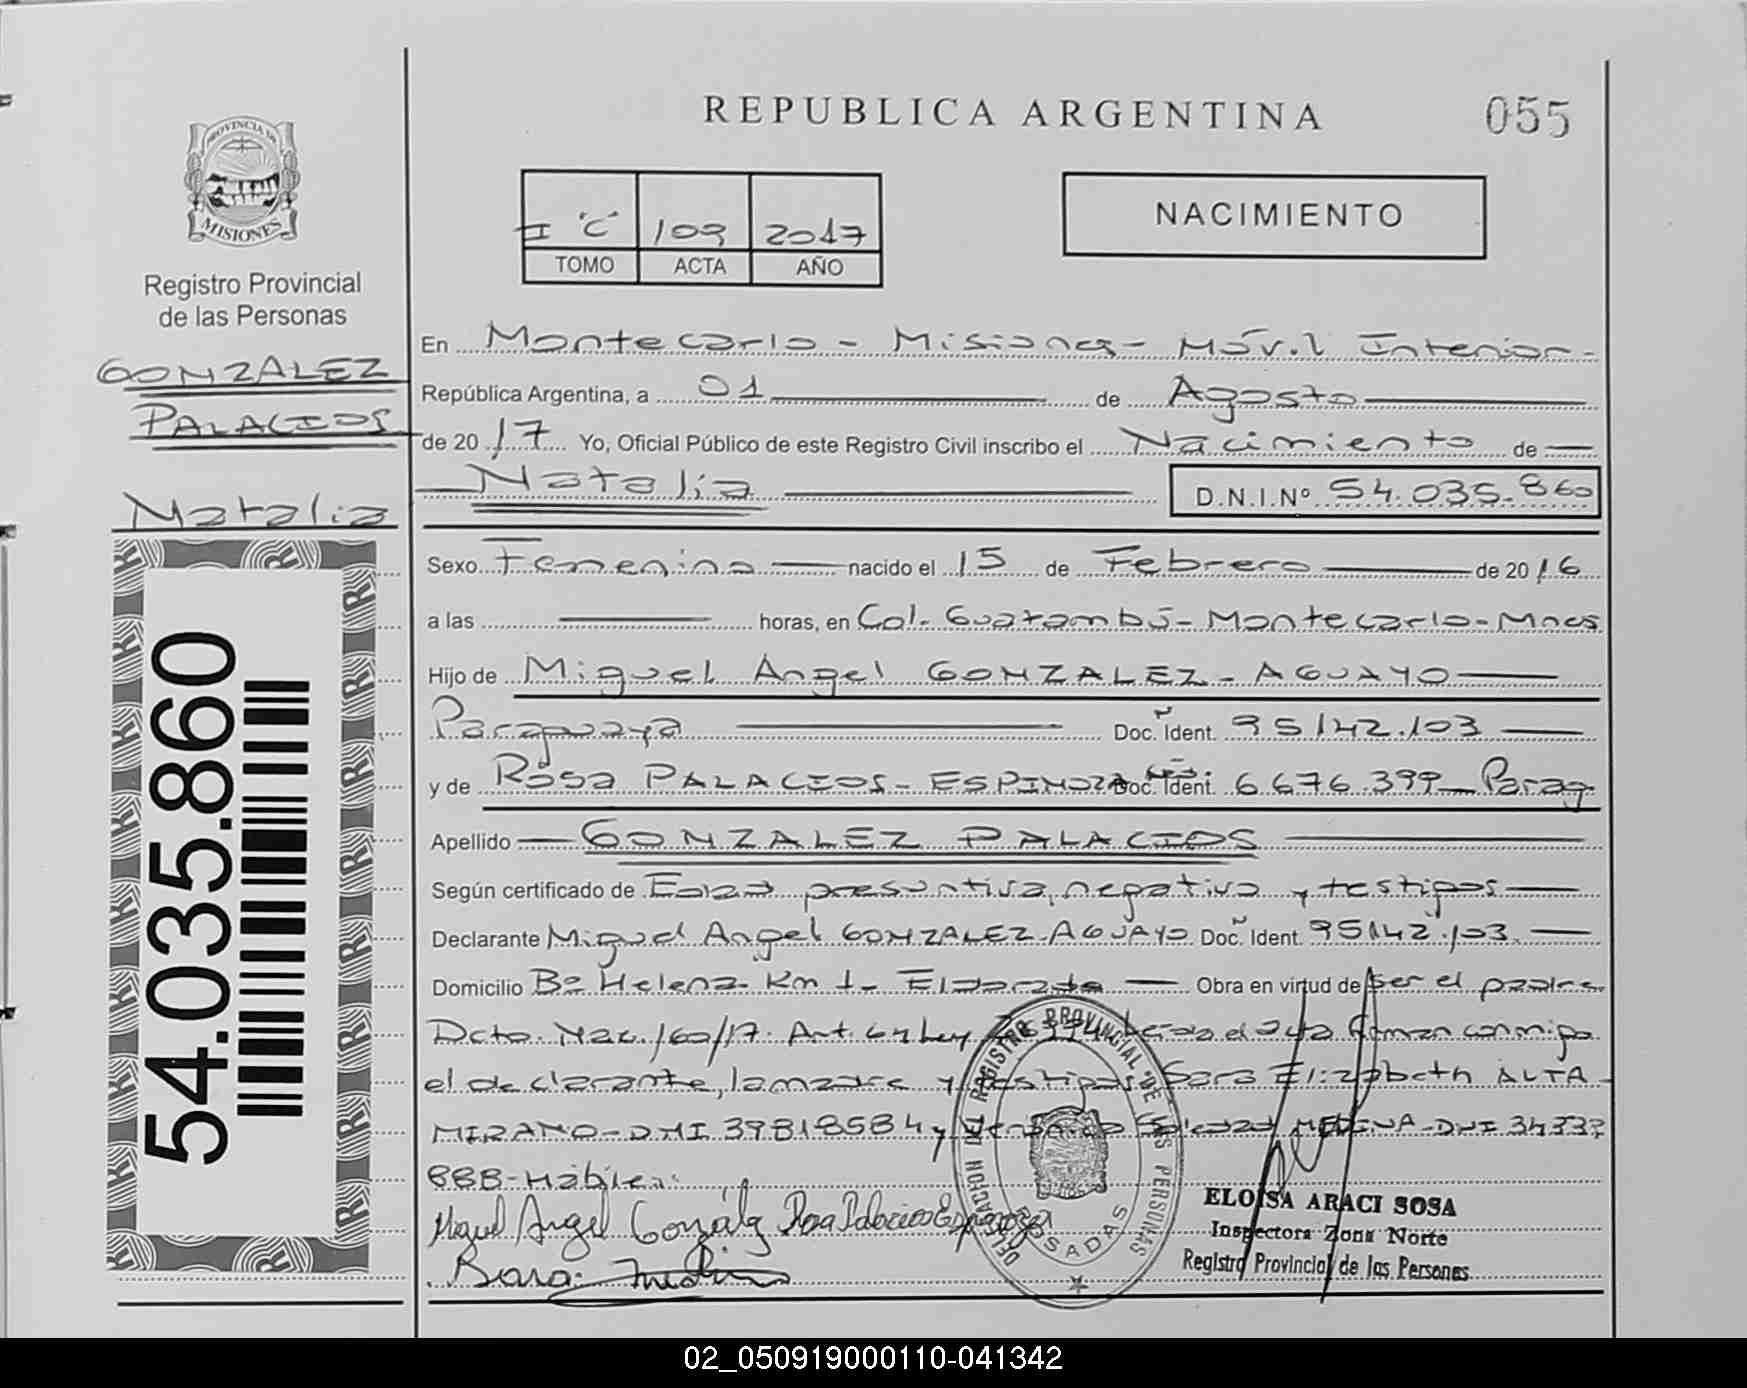 REPUBLICA ARGENTINA
055
PROVINCIA DE
MISIONES
Registro Provincial
de las Personas
GONZALEZ
PALACIOS
Natalia
54.035.860
I "C" 109 2017
TOMO ACTA AÑO
NACIMIENTO
En Montecarlo - Misiones - Móvil Interior -
República Argentina, a 01 de Agosto
de 2017 Yo, Oficial Público de este Registro Civil inscribo el Nacimiento de
Natalia D.N.I.Nº 54.035.860
Sexo Femenino nacido el 15 de Febrero de 2016
a las horas, en Col. Guatambú - Montecarlo - Mnes
Hijo de Miguel Angel GONZALEZ - AGUAYO
Paraguaya Doc. Ident. 95142.103
y de Rosa PALACIOS - ESPINOZA Doc. Ident. 6676.399 Parag
Apellido GONZALEZ PALACIOS
Según certificado de Edad presuntiva, negativa y testigos
Declarante Miguel Angel GONZALEZ - AGUAYO Doc. Ident. 95142.103.
Domicilio Bº Helena Km 1 - Eldorado Obra en virtud de ser el padre
Dcto. Nac. 160/17. Art. Ley Leida el acta firman conmigo
el declarante, la madre y testigos Sara Elizabeth ALTA-
MIRANO - DNI 39818584 y MEDINA - DNI 34333
888 - Hábiles.
Miguel Angel Gonzalez Rosa Palacios Espinoza
DELEGACION DEL REGISTRO PROVINCIAL DE LAS PERSONAS
POSADAS
ELOISA ARACI SOSA
Inspectora Zona Norte
Registro Provincial de las Personas
02_050919000110-041342